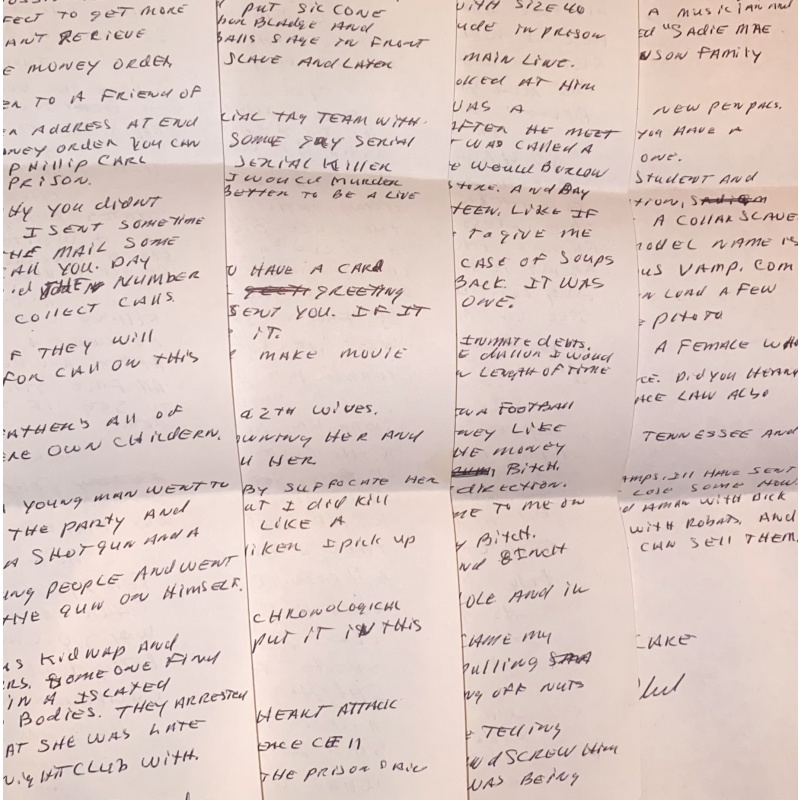 FECT TO GET MORE
ANT RERIEVE
E MONEY ORDER
EN TO A FRIEND OF
R ADDRESS AT END
ONEY ORDER YOU CAN
PHILLIP CARL
PRISON.
HY YOU DIDNT
I SENT SOMETIME
THE MAIL SOME
ALL YOU. DAY
THE NUMBER
COLLECT CALLS
F THEY WILL
FOR CALL ON THIS
ATHER'S ALL OF
RE OWN CHILDERN.
YOUNG MAN WENT TO
THE PARTY AND
A SHOTGUN AND A
UNG PEOPLE AND WENT
THE GUN ON HIMSELF.
AS KIDNAP AND
RS. SOMEONE FIND
IN A ISCATED
BODIES. THEY ARRESTED
AT SHE WAS LATE
NIGHTCLUB WITH.
PUT SIC CONE
AND
BALLS SAGE IN FRONT
SLAVE AND LATER
CIAL TAG TEAM WITH
SOME GAY SERIAL
SERIAL KILLER
I WOULD MURDER
BETTER TO BE A LIVE
U HAVE A CARD
GREETING
SENT YOU. IF IT
IT.
MAKE MOVIE
12TH WIVES.
OWNING HER AND
U HER
BY SUFFOCATE HER
UT I DID KILL
LIKE A
LIKEN I PICK UP
CHRONOLOGICAL
PUT IT IN THIS
HEART ATTACK
ENCE CELL
THE PRISON
WITH SIZE 40
UDE IN PRISON
MAIN LINE.
OKED AT HIM
WAS A
AFTER HE MEET
T WAS CALLED A
E WOULD BURLOW
STORE. AND BAY
TEEN. LIKE IF
TO GIVE ME
CASE OF SOUPS
BACK. IT WAS
ONE.
INMATE DEBTS.
E DALLOR I WOULD
N LENGTH OF TIME
IN A FOOTBALL
NEY LIKE
HE MONEY
BITCH.
DIRECTION.
ME TO ME ON
Y BITCH.
ND 8 INCH
OLE AND IN
CAME MY
PULLING
NG OFF NUTS
TELLING
AND SCREW HIM
WAS BEING
A MUSICIAN AND
ED "SADIE MAE
NSON FAMILY
NEW PENPALS.
YOU HAVE A
ONE.
STUDENT AND
TION,
A COLLAR SLAVE
MODEL NAME IS
US VAMP. COM
N LOAD A FEW
PHOTO
A FEMALE WHO
CE. DID YOU HEARD
ACE LAW ALSO
TENNESSEE AND
AMPS. I'LL HAVE SENT
LOSE SOME HOW.
D A MAN WITH DICK
WITH ROBOTS, AND
CAN SELL THEM
CAKE